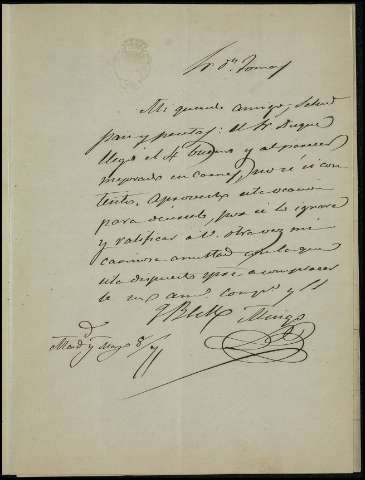 Sr. Dn. Tomas
Mi querido amigo; Salud
paz y pesetas: el Sr. Duque
llegó el 4 bueno y al parecer
mejorado en carnes, no sé si con
tento. Aprovecho esta ocasion
para decirselo, por si lo ignora
y ratificar a V. otra vez mi
cariñosa amistad con la que
esta dispuesto a complacer
le su am.
Mingo
Madd. y Mayo 8/71